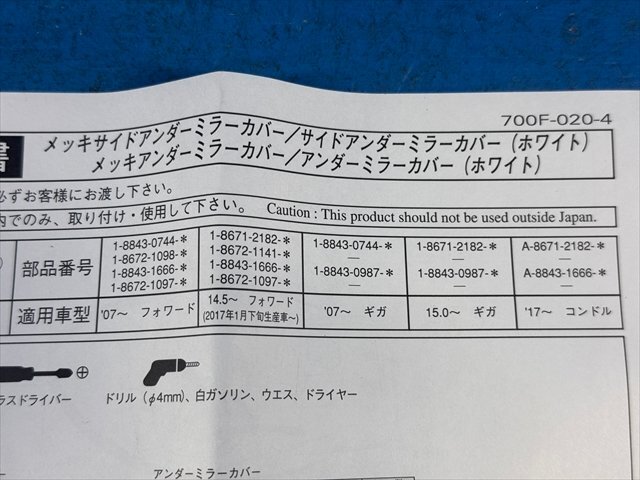 700F-020-4
書 メッキサイドアンダーミラーカバー／サイドアンダーミラーカバー（ホワイト）
メッキアンダーミラーカバー／アンダーミラーカバー（ホワイト）
必ずお客様にお渡し下さい。
内でのみ、取り付け・使用して下さい。 Caution : This product should not be used outside Japan.
部品番号
1-8843-0744-＊
1-8672-1098-＊
1-8843-1666-＊
1-8672-1097-＊
1-8671-2182-＊
1-8672-1141-＊
1-8843-1666-＊
1-8672-1097-＊
1-8843-0744-＊
—
1-8843-0987-＊
—
1-8671-2182-＊
—
1-8843-0987-＊
—
A-8671-2182-＊
—
A-8843-1666-＊
—
適用車型
'07～ フォワード
14.5～ フォワード
(2017年1月下旬生産車～)
'07～ ギガ
15.0～ ギガ
'17～ コンドル
ラスドライバー
ドリル（φ4mm）、白ガソリン、ウエス、ドライヤー
アンダーミラーカバー